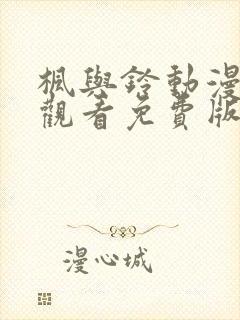 楓與鈴動漫
觀看免費版
漫心城